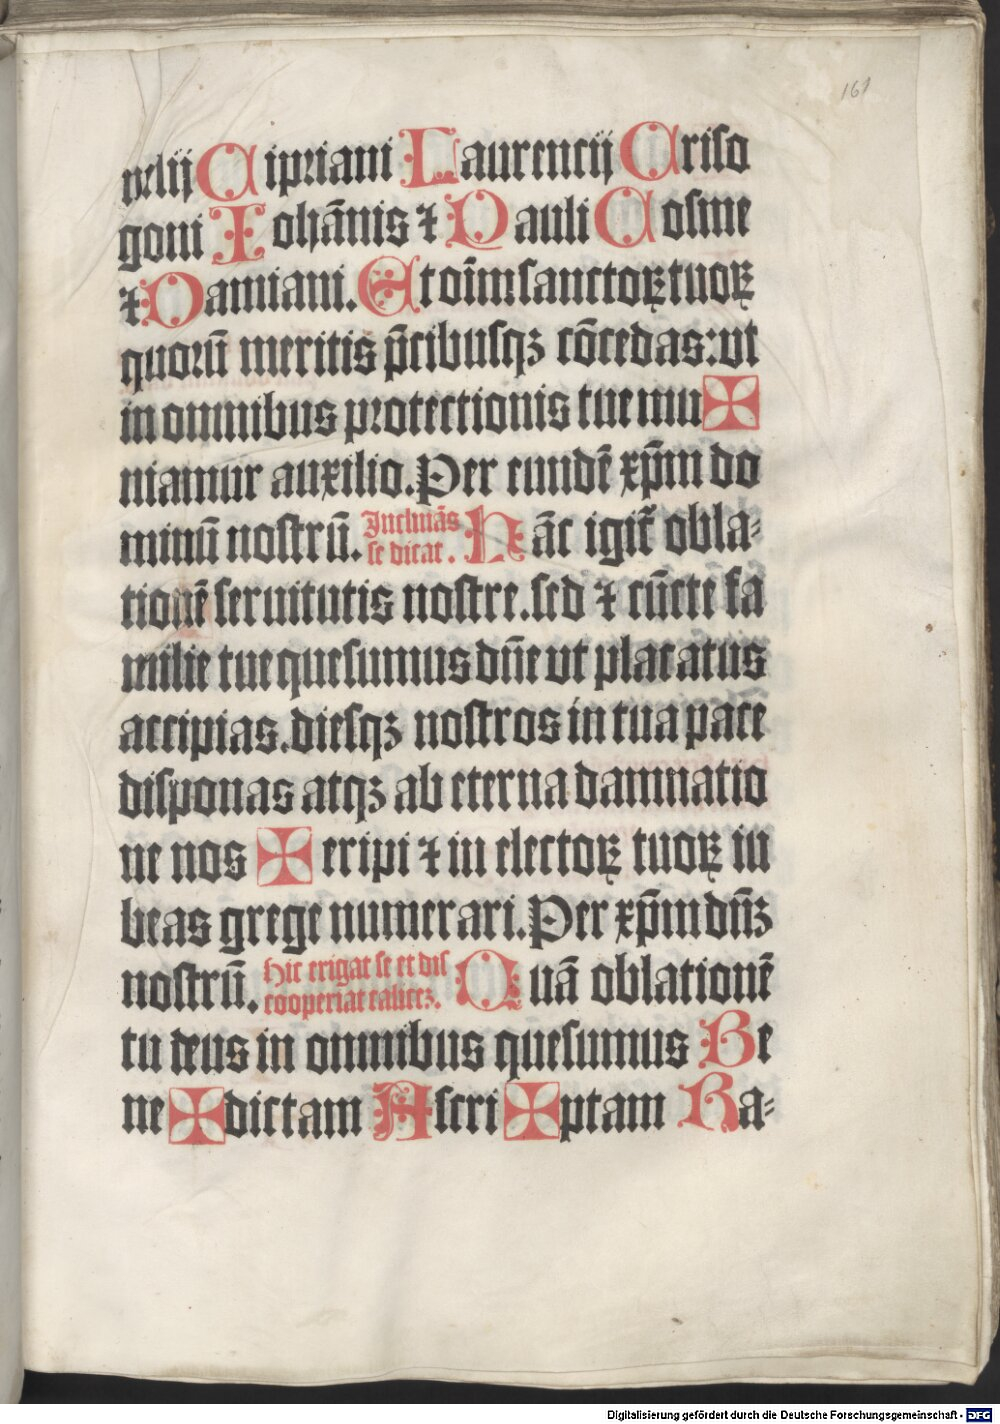 161
nelij Cipriani Laurencij Criso
goni Iohānis ⁊ Pauli Cosme
⁊ Damiani. Et oīm sanctoꝝ tuoꝝ
quorū meritis p̄cibusqꝫ cōcedas: ut
in omnibus protectionis tue mu✠
niamur auxilio. Per eundē xp̄m do
minū nostrū. Inclinās Hāc igit̄ obla⸗
se dicat.
tionē seruitutis nostre. sed ⁊ cūcte fa
milie tue quesumus dn̄e ut placatus
accipias. diesqꝫ nostros in tua pace
disponas atqꝫ ab eterna damnatio
ne nos ✠ eripi ⁊ in electoꝝ tuoꝝ iu
beas grege numerari. Per xp̄m dn̄ꝫ
nostrū. Hic erigat se et dis Quā oblationē
cooperiat caliceꝫ.
tu deus in omnibus quesumus Be
ne✠dictam Ascri✠ptam Ra⸗
Digitalisierung gefördert durch die Deutsche Forschungsgemeinschaft - DFG